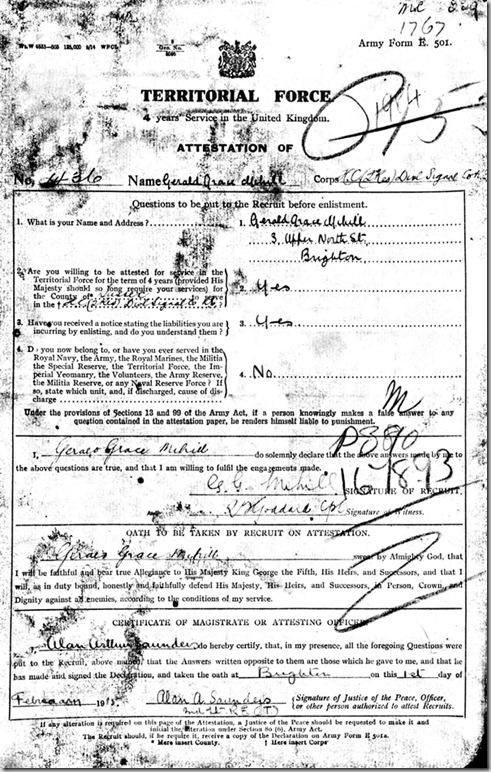 1767
Army Form E. 501.
TERRITORIAL FORCE
4 years' Service in the United Kingdom.
ATTESTATION OF
No. 436 Name Gerald Grace Mihill Corps Divl Signal
Questions to be put to the Recruit before enlistment.
1. What is your Name and Address? 1. Gerald Grace Mihill
3, Upper North St.
Brighton
2. Are you willing to be attested for service in the
Territorial Force for the term of 4 years (provided His
Majesty should so long require your services) for
the County of
2. Yes
3. Have you received a notice stating the liabilities you are
incurring by enlisting, and do you understand them?
3. Yes
4. Do you now belong to, or have you ever served in the
Royal Navy, the Army, the Royal Marines, the Militia
the Special Reserve, the Territorial Force, the Im-
perial Yeomanry, the Volunteers, the Army Reserve,
the Militia Reserve, or any Naval Reserve Force? If
so, state which unit, and, if discharged, cause of dis-
charge
4. No
Under the provisions of Sections 13 and 99 of the Army Act, if a person knowingly makes a false answer to any
question contained in the attestation paper, he renders himself liable to punishment.
I, Gerald Grace Mihill do solemnly declare that the above answers made by me to
the above questions are true, and that I am willing to fulfil the engagements made.
G. G. Mihill SIGNATURE OF RECRUIT,
Goddard Cpl Signature of Witness.
OATH TO BE TAKEN BY RECRUIT ON ATTESTATION.
I, Gerald Grace Mihill swear by Almighty God, that
I will be faithful and bear true Allegiance to His Majesty King George the Fifth, His Heirs, and Successors, and that I
will, as in duty bound, honestly and faithfully defend His Majesty, His Heirs, and Successors, in Person, Crown, and
Dignity against all enemies, according to the conditions of my service.
CERTIFICATE OF MAGISTRATE OR ATTESTING OFFICER.
I, Alan Arthur Saunders do hereby certify, that, in my presence, all the foregoing Questions were
put to the Recruit, above named, that the Answers written opposite to them are those which he gave to me, and that he
has made and signed the Declaration, and taken the oath at Brighton on this 1st day of
February 1915 Alan A. Saunders
Signature of Justice of the Peace, Officer,
or other person authorized to attest Recruits.
If any alteration is required on this page of the Attestation, a Justice of the Peace should be requested to make it and
initial the alteration under Section 80 (6), Army Act.
The Recruit should, if he require it, receive a copy of the Declaration on Army Form E 501a.
Here insert County. Here insert Corps